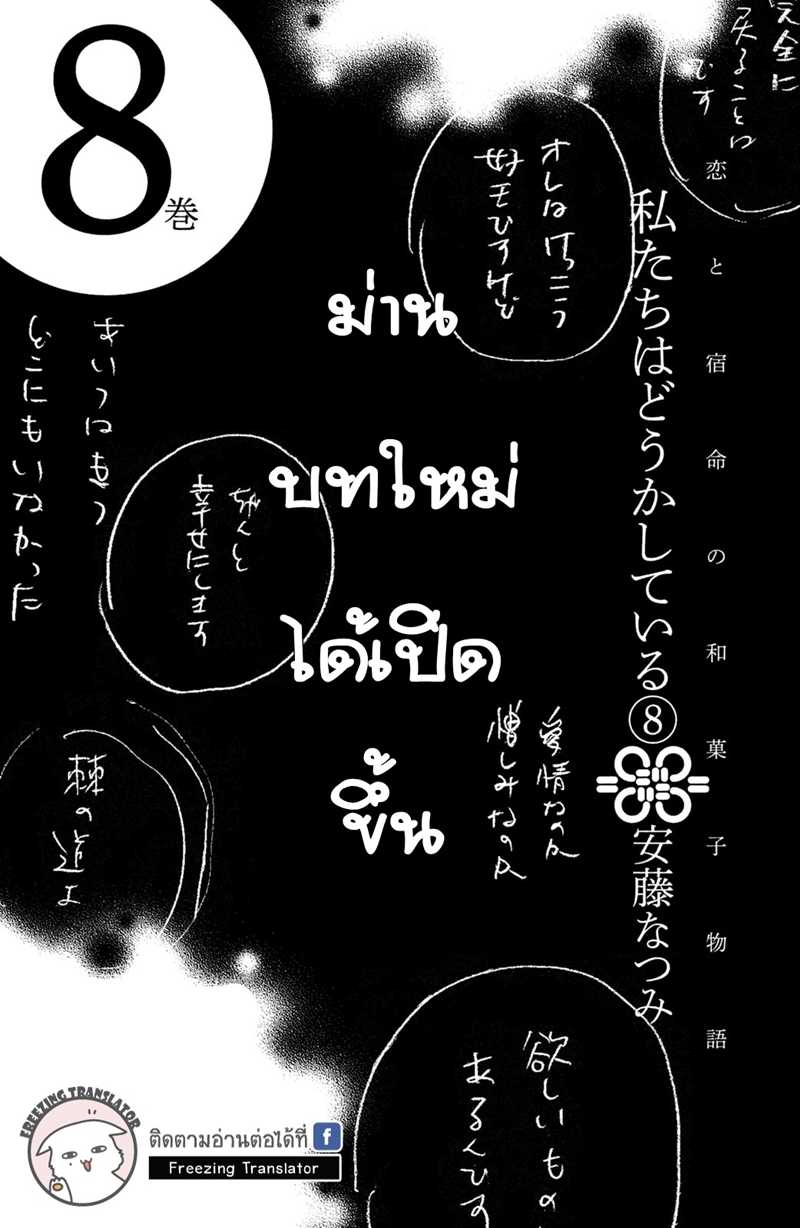 8
巻
完全に
戻ることは
です
恋と宿命の和菓子物語
私たちはどうかしている⑧
安藤なつみ
オレはけっこう
好モひすけど
ม่าน
บทใหม่
ได้เปิด
ขึ้น
あいつはもう
どこにもいなかった
ちゃんと
幸せにします
愛情なのか
憎しみなのか
棘の道よ
欲しいもの
あるんです
FREEZING TRANSLATOR
ติดตามอ่านต่อได้ที่ f
Freezing Translator